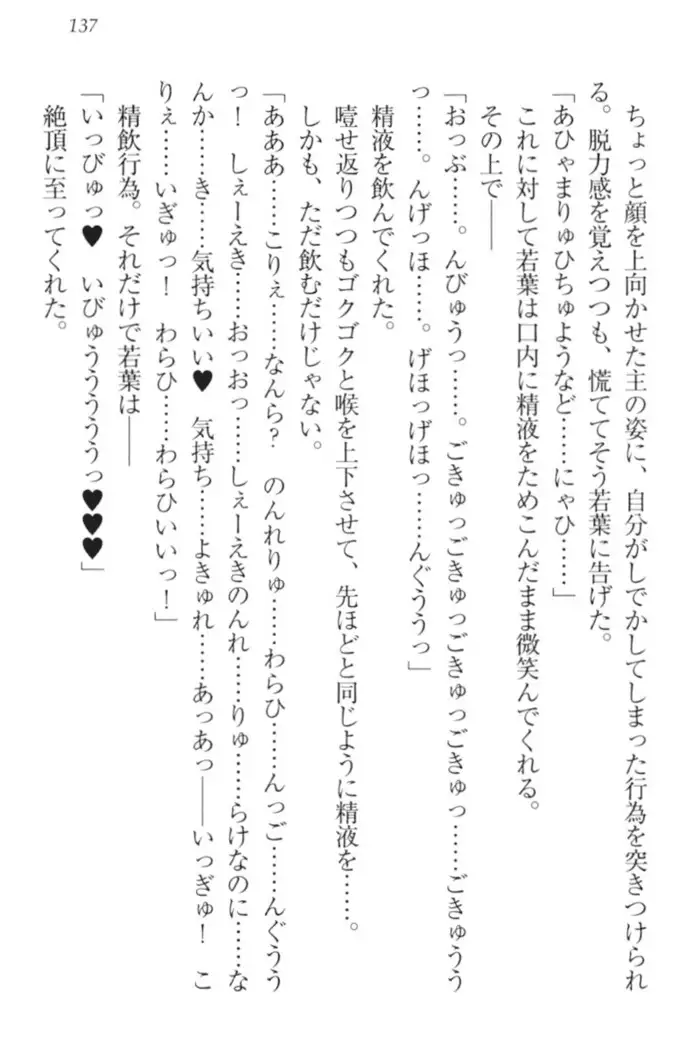 137
ちょっと顔を上向かせた主の姿に、自分がしでかしてしまった行為を突きつけられ
る。脱力感を覚えつつも、慌ててそう若葉に告げた。
「あひゃまりゅひちゅようなど……にゃひ……」
これに対して若葉は口内に精液をためこんだまま微笑んでくれる。
その上で――
「おっぶ……。んびゅうっ……。ごきゅっごきゅっごきゅっごきゅっ……ごきゅうう
っ……。んげっほ……。げほっげほっ……んぐううっ」
精液を飲んでくれた。
噎せ返りつつもゴクゴクと喉を上下させて、先ほどと同じように精液を……。
しかも、ただ飲むだけじゃない。
「あああ……こりぇ……なんら? のんれりゅ……わらひ……んっご……んぐうう
っ! しぇーえき……おっおっ……しぇーえきのんれ……りゅ……らけなのに……な
んか……き……気持ちいい♥ 気持ち……よきゅれ……あっあっ――いっぎゅ! こ
りぇ……いぎゅっ! わらひ……わらひいいっ!」
精飲行為。それだけで若葉は――
「いっびゅっ♥ いびゅうううううっ♥♥♥」
絶頂に至ってくれた。